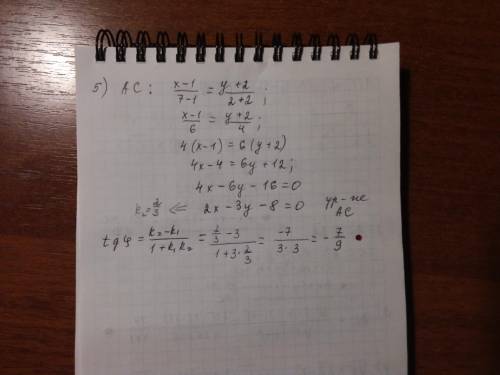 5) AC: (x-1)/(7-1) = (y+2)/(2+2);
(x-1)/6 = (y+2)/4;
4(x-1) = 6(y+2)
4x-4 = 6y+12;
4x-6y-16=0
k₂=2/3 ⇐ 2x-3y-8=0 ур-не AC
tg φ = (k₂-k₁)/(1+k₁k₂) = (2/3-3)/(1+3·2/3) = -7/(3·3) = -7/9